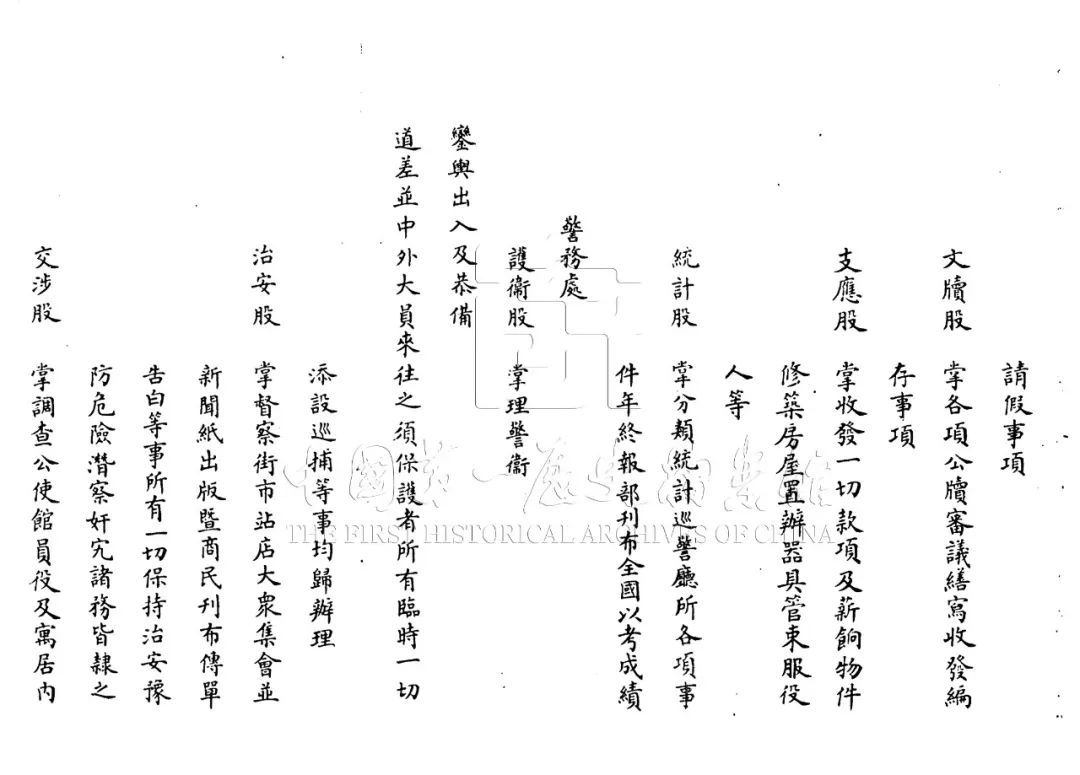 請假事項
文牘股 掌各項公牘審議繕寫收發編
存事項
支應股 掌收發一切款項及薪餉物件
修築房屋置辦器具管束服役
人等
統計股 掌分類統計巡警廳所各項事
件年終報部刊布全國以考成績
警務處
護衞股 掌理警衞
鑾輿出入及恭備
道差並中外大員來往之須保護者所有臨時一切
添設巡捕等事均歸辦理
治安股 掌督察街市站店大衆集會並
新聞紙出版暨商民刊布傳單
告白等事所有一切保持治安豫
防危險潛察奸宄諸務皆隸之
交涉股 掌調查公使館員役及寓居內
中國第一歷史檔案館
THE FIRST HISTORICAL ARCHIVES OF CHINA